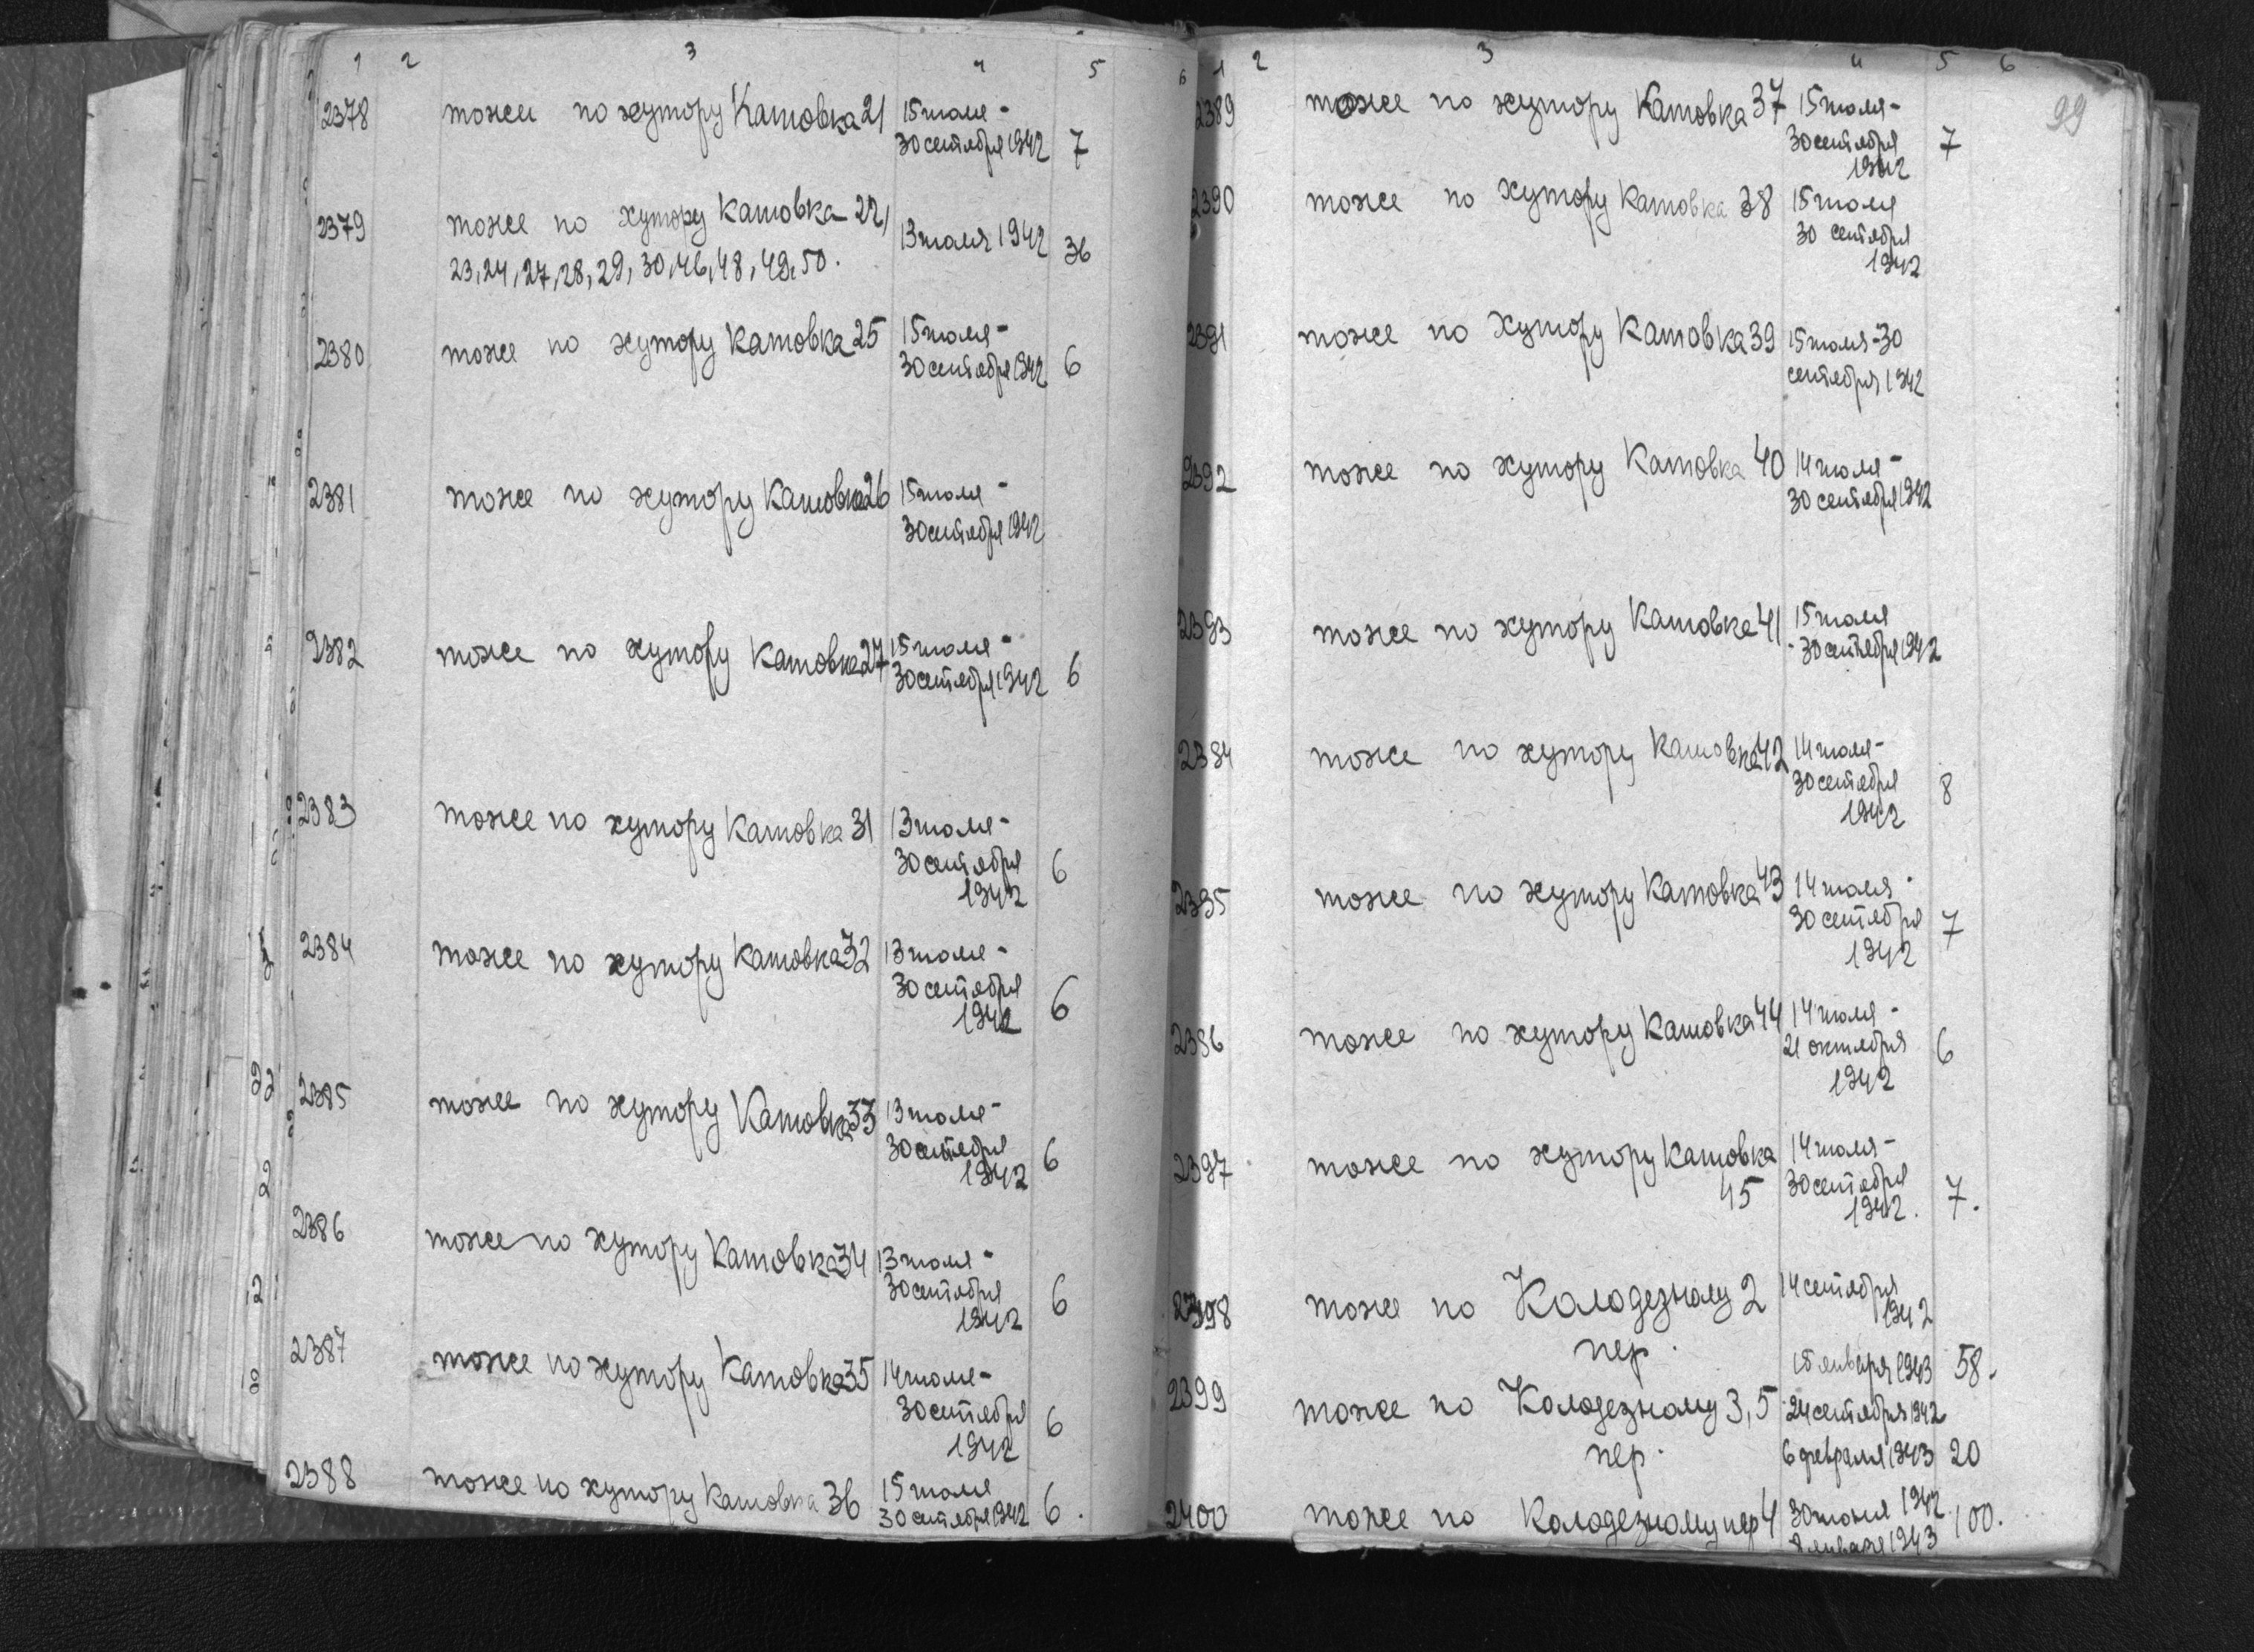 1 2 3 4 5 6
2378 тоже по хутору Катовка 21 15 июля -
30 сентября 1942 7
2379 тоже по хутору Катовка 22,
23, 24, 27, 28, 29, 30, 46, 48, 49, 50. 13 июля 1942 36
2380 тоже по хутору Катовка 25 15 июля -
30 сентября 1942 6
2381 тоже по хутору Катовка 26 15 июля -
30 сентября 1942
2382 тоже по хутору Катовка 27 15 июля -
30 сентября 1942 6
2383 тоже по хутору Катовка 31 13 июля -
30 сентября 6
1942
2384 тоже по хутору Катовка 32 13 июля -
30 сентября
1942 6
2385 тоже по хутору Катовка 33 13 июля -
30 сентября 6
1942
2386 тоже по хутору Катовка 34 13 июля -
30 сентября 6
1942
2387 тоже по хутору Катовка 35 14 июля -
30 сентября 6
1942
2388 тоже по хутору Катовка 36 15 июля
30 сентября 1942 6.
1 2 3 4 5 6
99
2389 тоже по хутору Катовка 37 15 июля -
30 сентября 7
1942
2390 тоже по хутору Катовка 38 15 июля
30 сентября
1942
2391 тоже по хутору Катовка 39 15 июля - 30
сентября 1942
2392 тоже по хутору Катовка 40 14 июля -
30 сентября 1942
2393 тоже по хутору Катовка 41 15 июля
- 30 сентября 1942
2394 тоже по хутору Катовка 42 14 июля -
30 сентября 8
1942
2395 тоже по хутору Катовка 43 14 июля -
30 сентября 7
1942
2396 тоже по хутору Катовка 44 14 июля -
21 октября 6
1942
2397 тоже по хутору Катовка 14 июля -
45 30 сентября 7.
1942.
2398 тоже по Колодезному 2 14 сентября
1942
пер. 15 января 1943 58.
2399 тоже по Колодезному 3, 5 24 сентября 1942
пер. 6 февраля 1943 20
2400 тоже по Колодезному пер 4 30 июня 1942 100.
8 января 1943